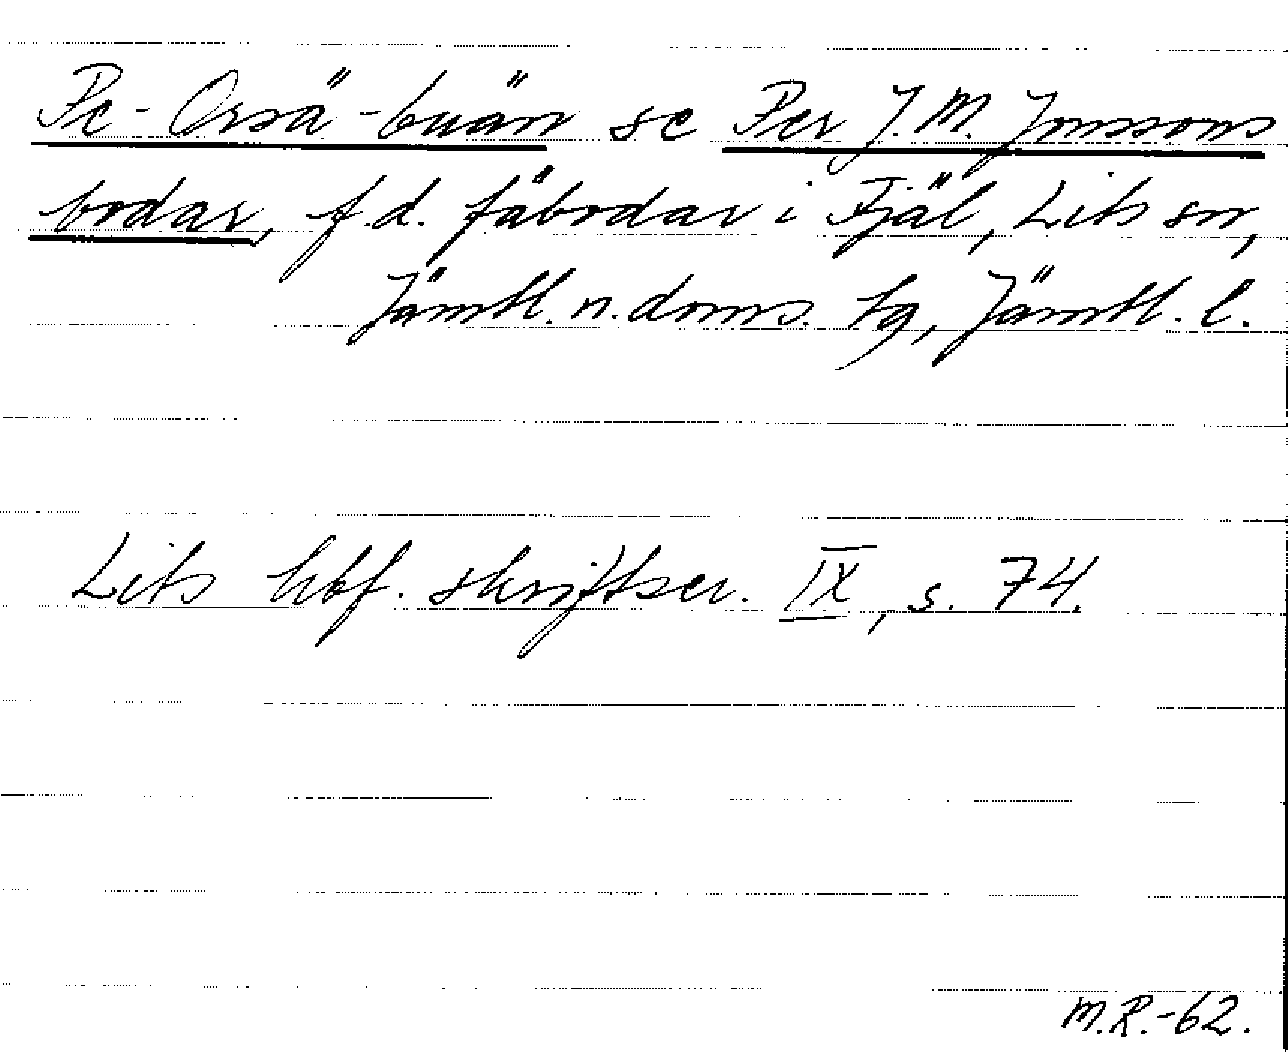 Pe-Orsä-buän se Per J.M. Jonssons
bodar, f.d. fäbodar i Fjäl, Lits sn,
Jämtl. n. doms. tg, Jämtl. l.
Lits hbf. skriftser. IX, s. 74.
M.R.-62.